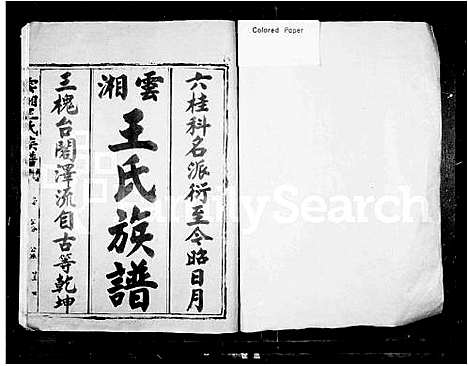 Colored Paper
六桂科名派衍至今昭日月
雲湘
王氏族譜
三槐台閣澤流自古等乾坤